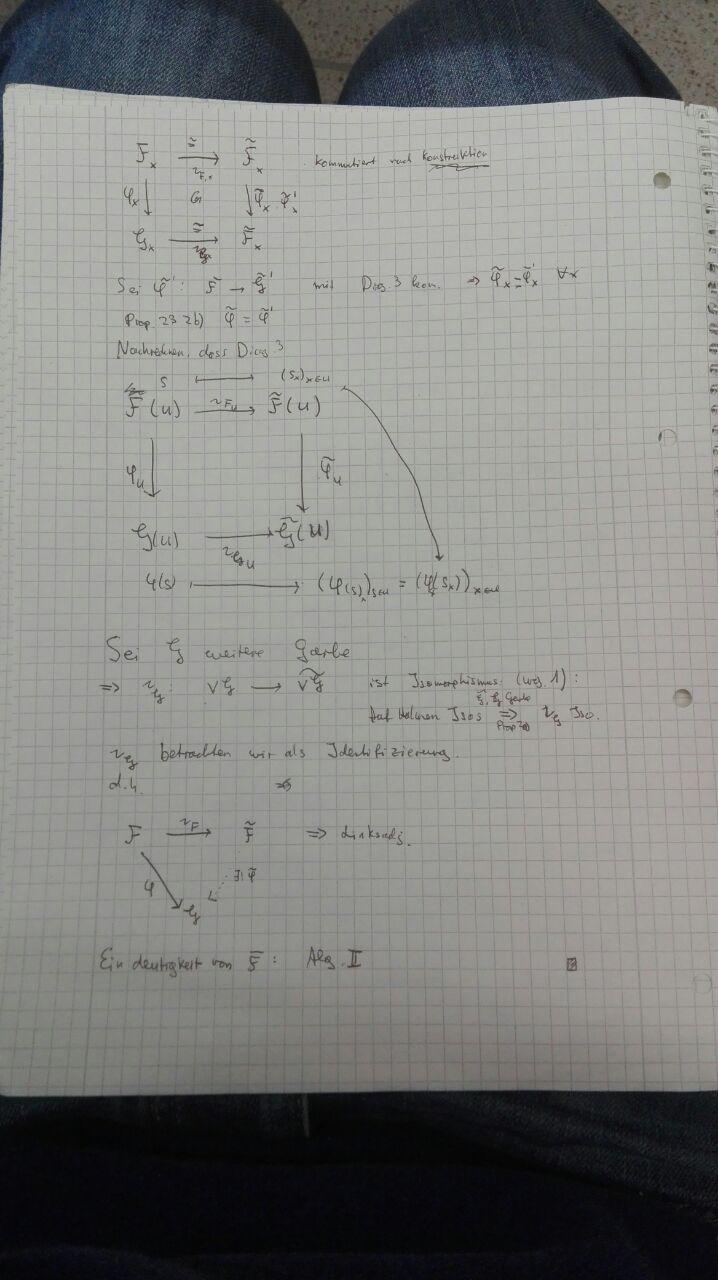 F_x →≅ F̃_x kommutiert nach Konstruktion
ι_{F,x}
φ_x ↓ ↓ φ̃_x φ̃'_x
G_x →≅ F̃_x
Sei φ̃': F̃ → G̃' mit Diag. 3 kom. ⇒ φ̃_x = φ̃'_x ∀x
Prop. 23 2b) φ̃ = φ̃'
Nachrechnen, dass Diag. 3
s ⟼ (s_x)_{x∈U}
F(U) →ι_{F_U} F̃(U)
φ_U ↓ ↓ φ̃_U
G(U) → G̃(U)
ι_{G_U}
φ(s) ⟼ (φ(s)_x)_{s∈U} = (φ_x(s_x))_{x∈U}
Sei G weitere Garbe
⇒ ι_G: G → G̃ ist Isomorphismus (weg. 1):
G̃, G Garbe
Auf Halmen Isos ⇒ ι_G Iso.
ι_G betrachten wir als Identifizierung.
d.h.
F →ι_F F̃ ⇒ Linksadj.
φ ∃! φ̃
G
Eindeutigkeit von F̃: Alg. II